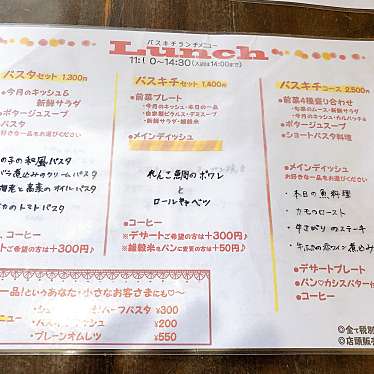 パスキチランチメニュー
Lunch
11:30~14:30(入店は14:00まで)
パスタセット 1,300円
●今月のキッシュ&
新鮮サラダ
●ポタージュスープ
パスタ
好きな一品をお選び下さい
の子の和風パスタ
のクリームパスタ
のオイルパスタ
カのトマトパスタ
コーヒー
ご希望の方は+300円♪
パスキチセット 1,400円
●前菜プレート
・今月のキッシュ・本日の一品
・自家製ピクルス・デミスープ
・新鮮サラダ・雑穀米
●メインディッシュ
れんこ鯛のポワレ
と
ロールキャベツ
●コーヒー
※デザートご希望の方は+300円♪
※雑穀米をパンに変更は+50円♪
パスキチコース 2,500円
●前菜4種盛り合わせ
●ポタージュスープ
●ショートパスタ料理
●メインディッシュ
お好きな一品をお選び下さい
・本日の魚料理
・カモのロースト
・牛さがりのステーキ
・牛ほほの赤ワイン煮込み
●デザートプレート
●パン♡カシスバター
●コーヒー
一品!というあなた・小さなお客さまにも♡〜
ニュー
ハーフパスタ ¥300
¥200
・プレーンオムレツ ¥550
◎全て税別
◎店頭販売